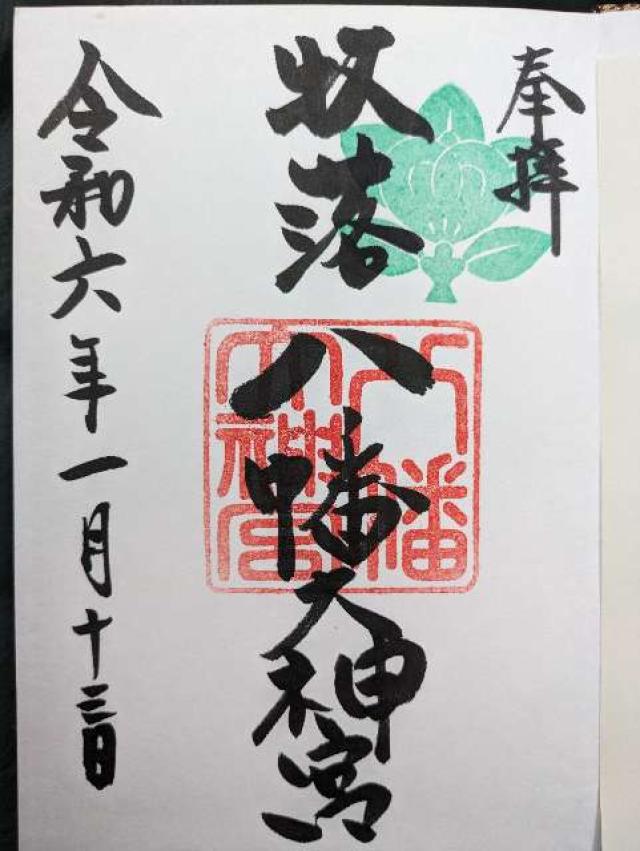 奉拝
牧落八幡大神宮
八幡
大神宮
令和六年一月十三日